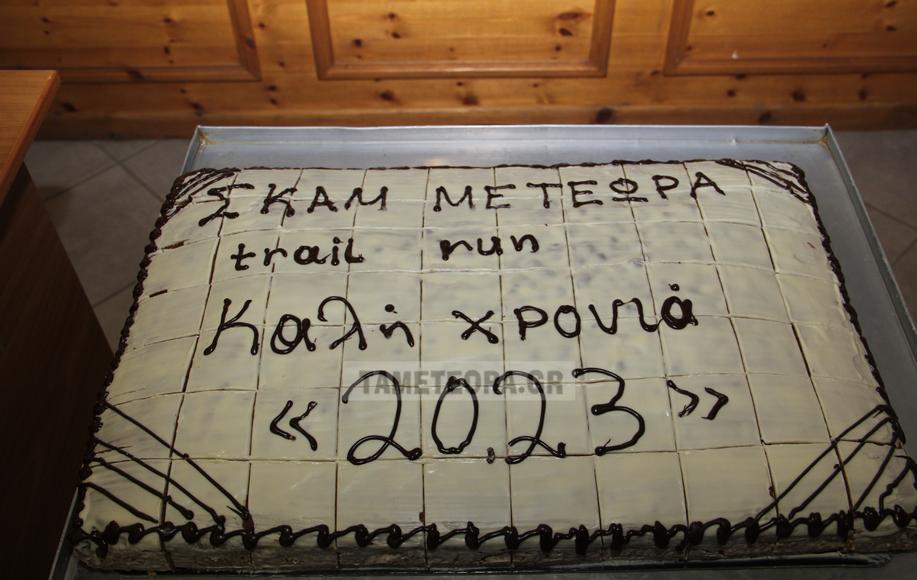 ΣΚΑΜ ΜΕΤΕΩΡΑ
trail run
Καλή χρονιά
TAMETEORA.GR
«2023»